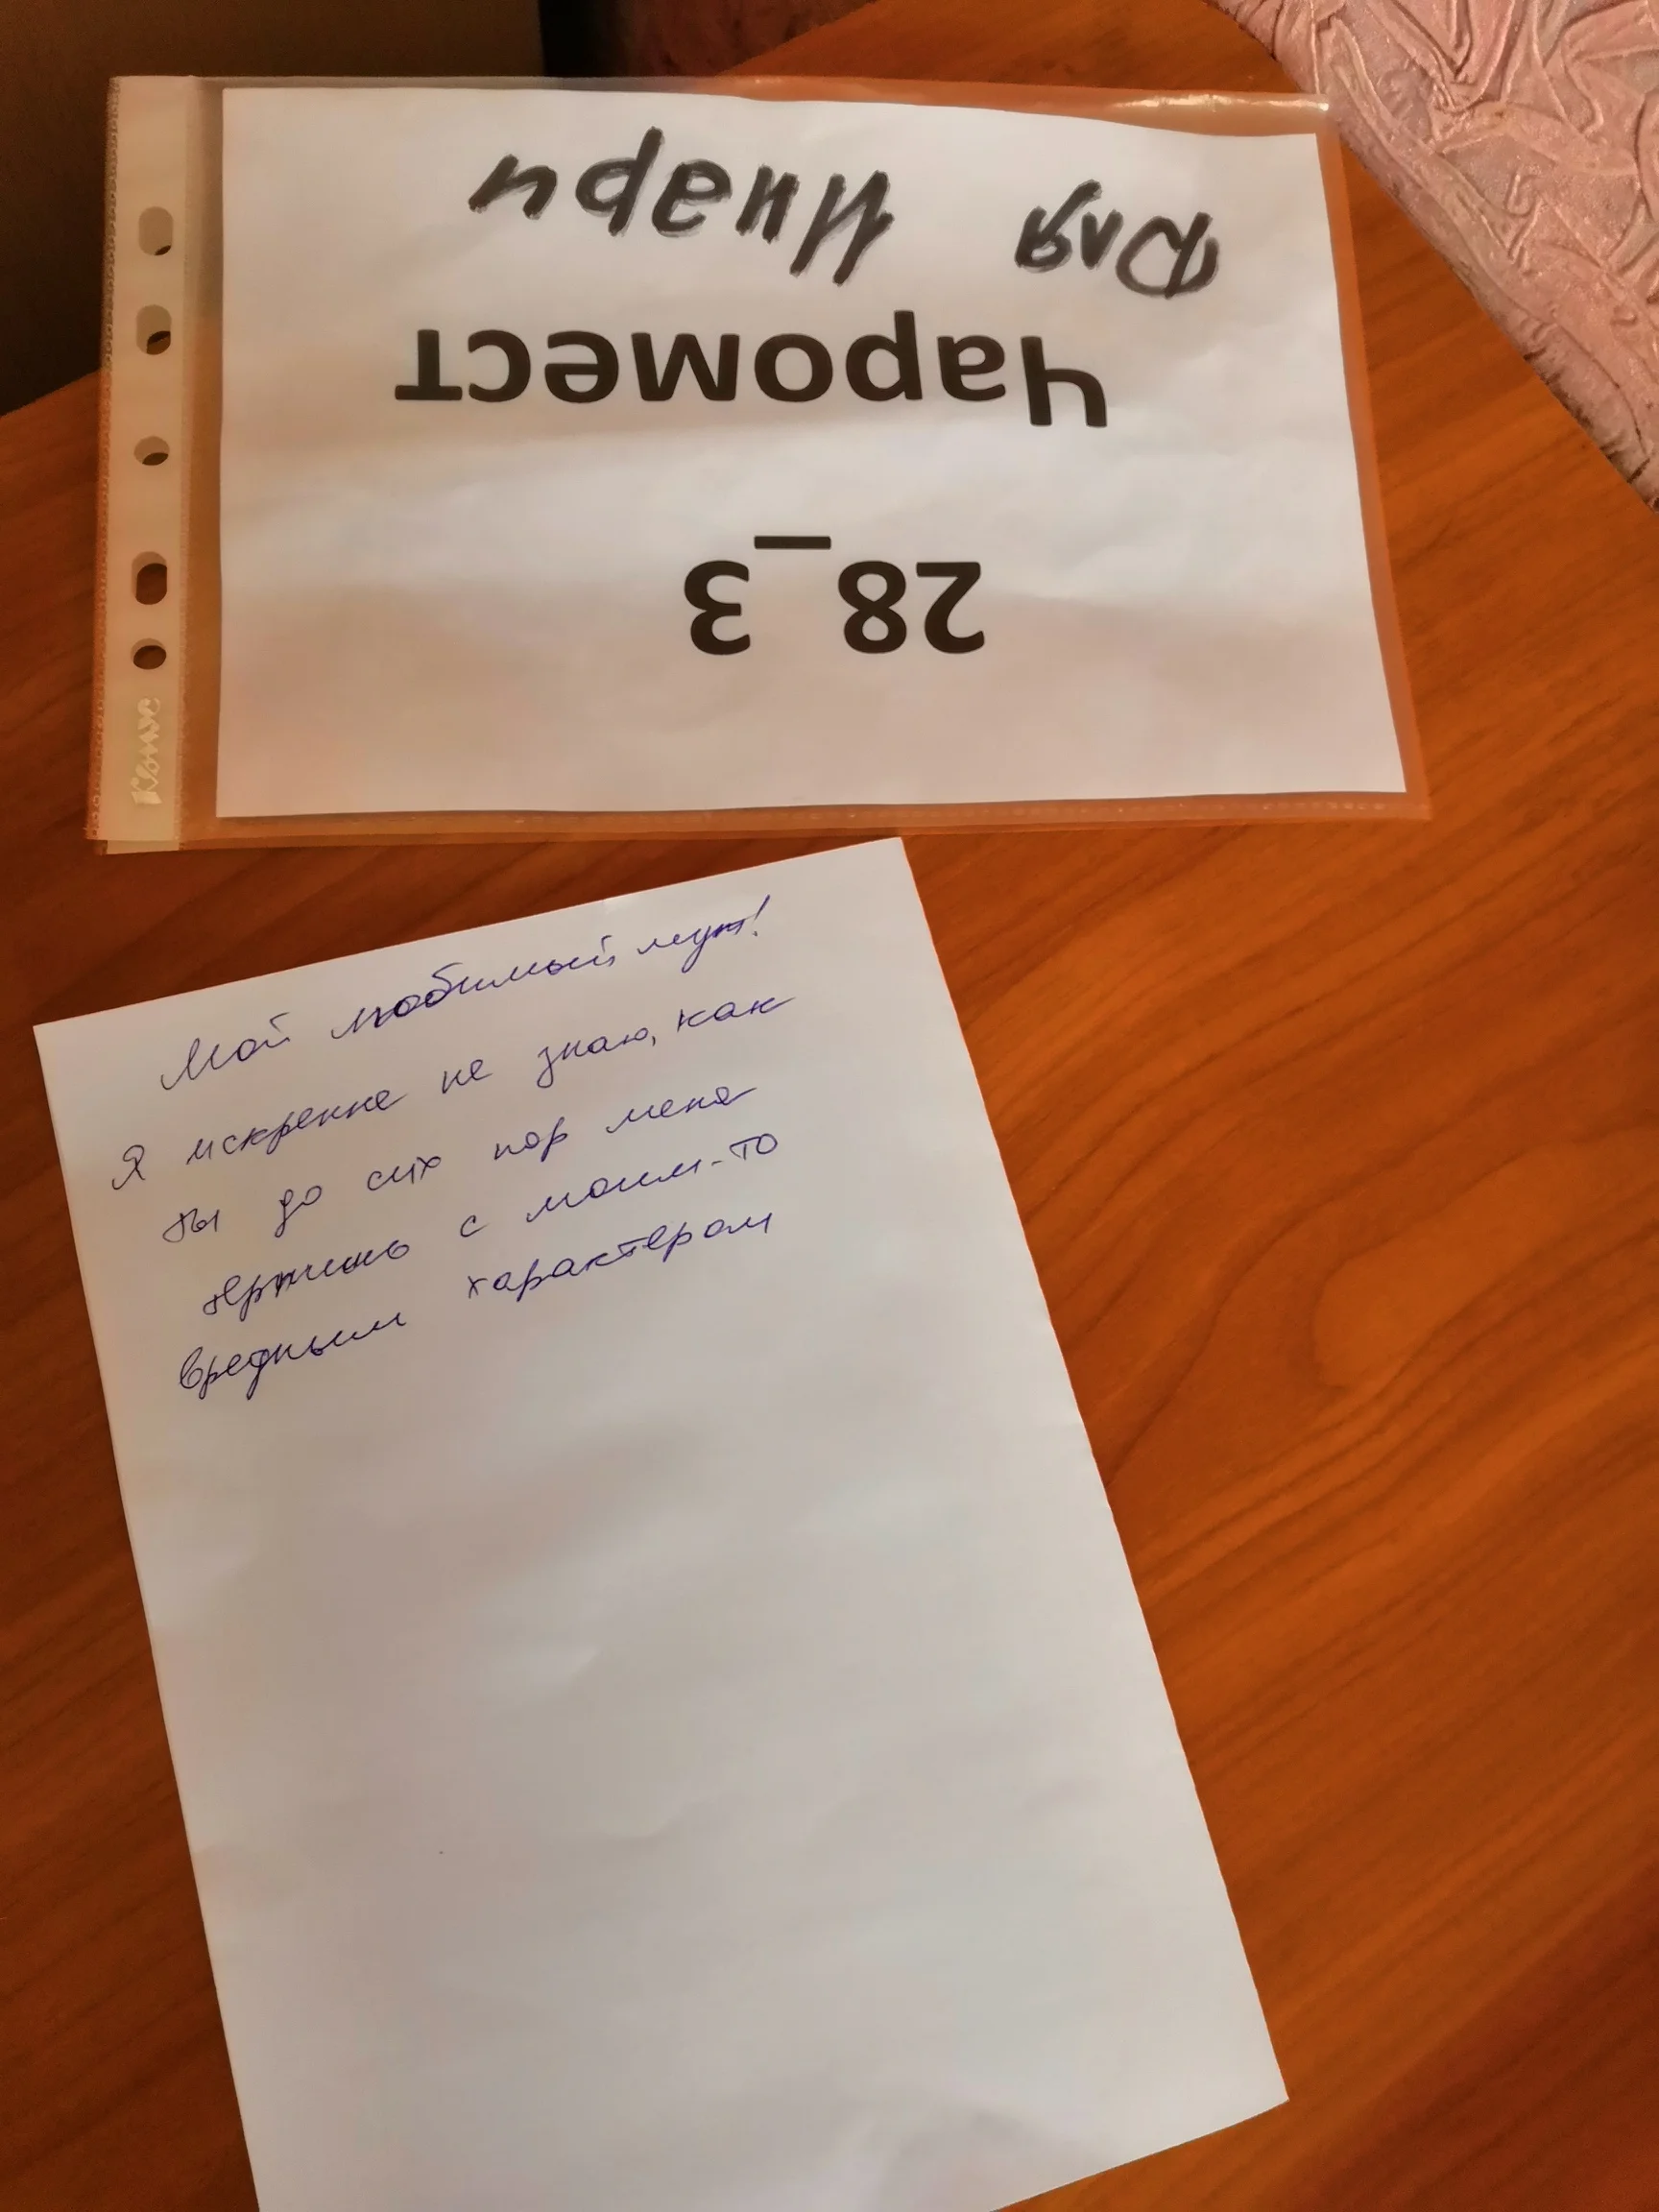 28_3
Чаромест
Для Инари
Комус
Мой любимый муж!
Я искренне не знаю, как
ты до сих пор меня
терпишь с моим-то
вредным характером